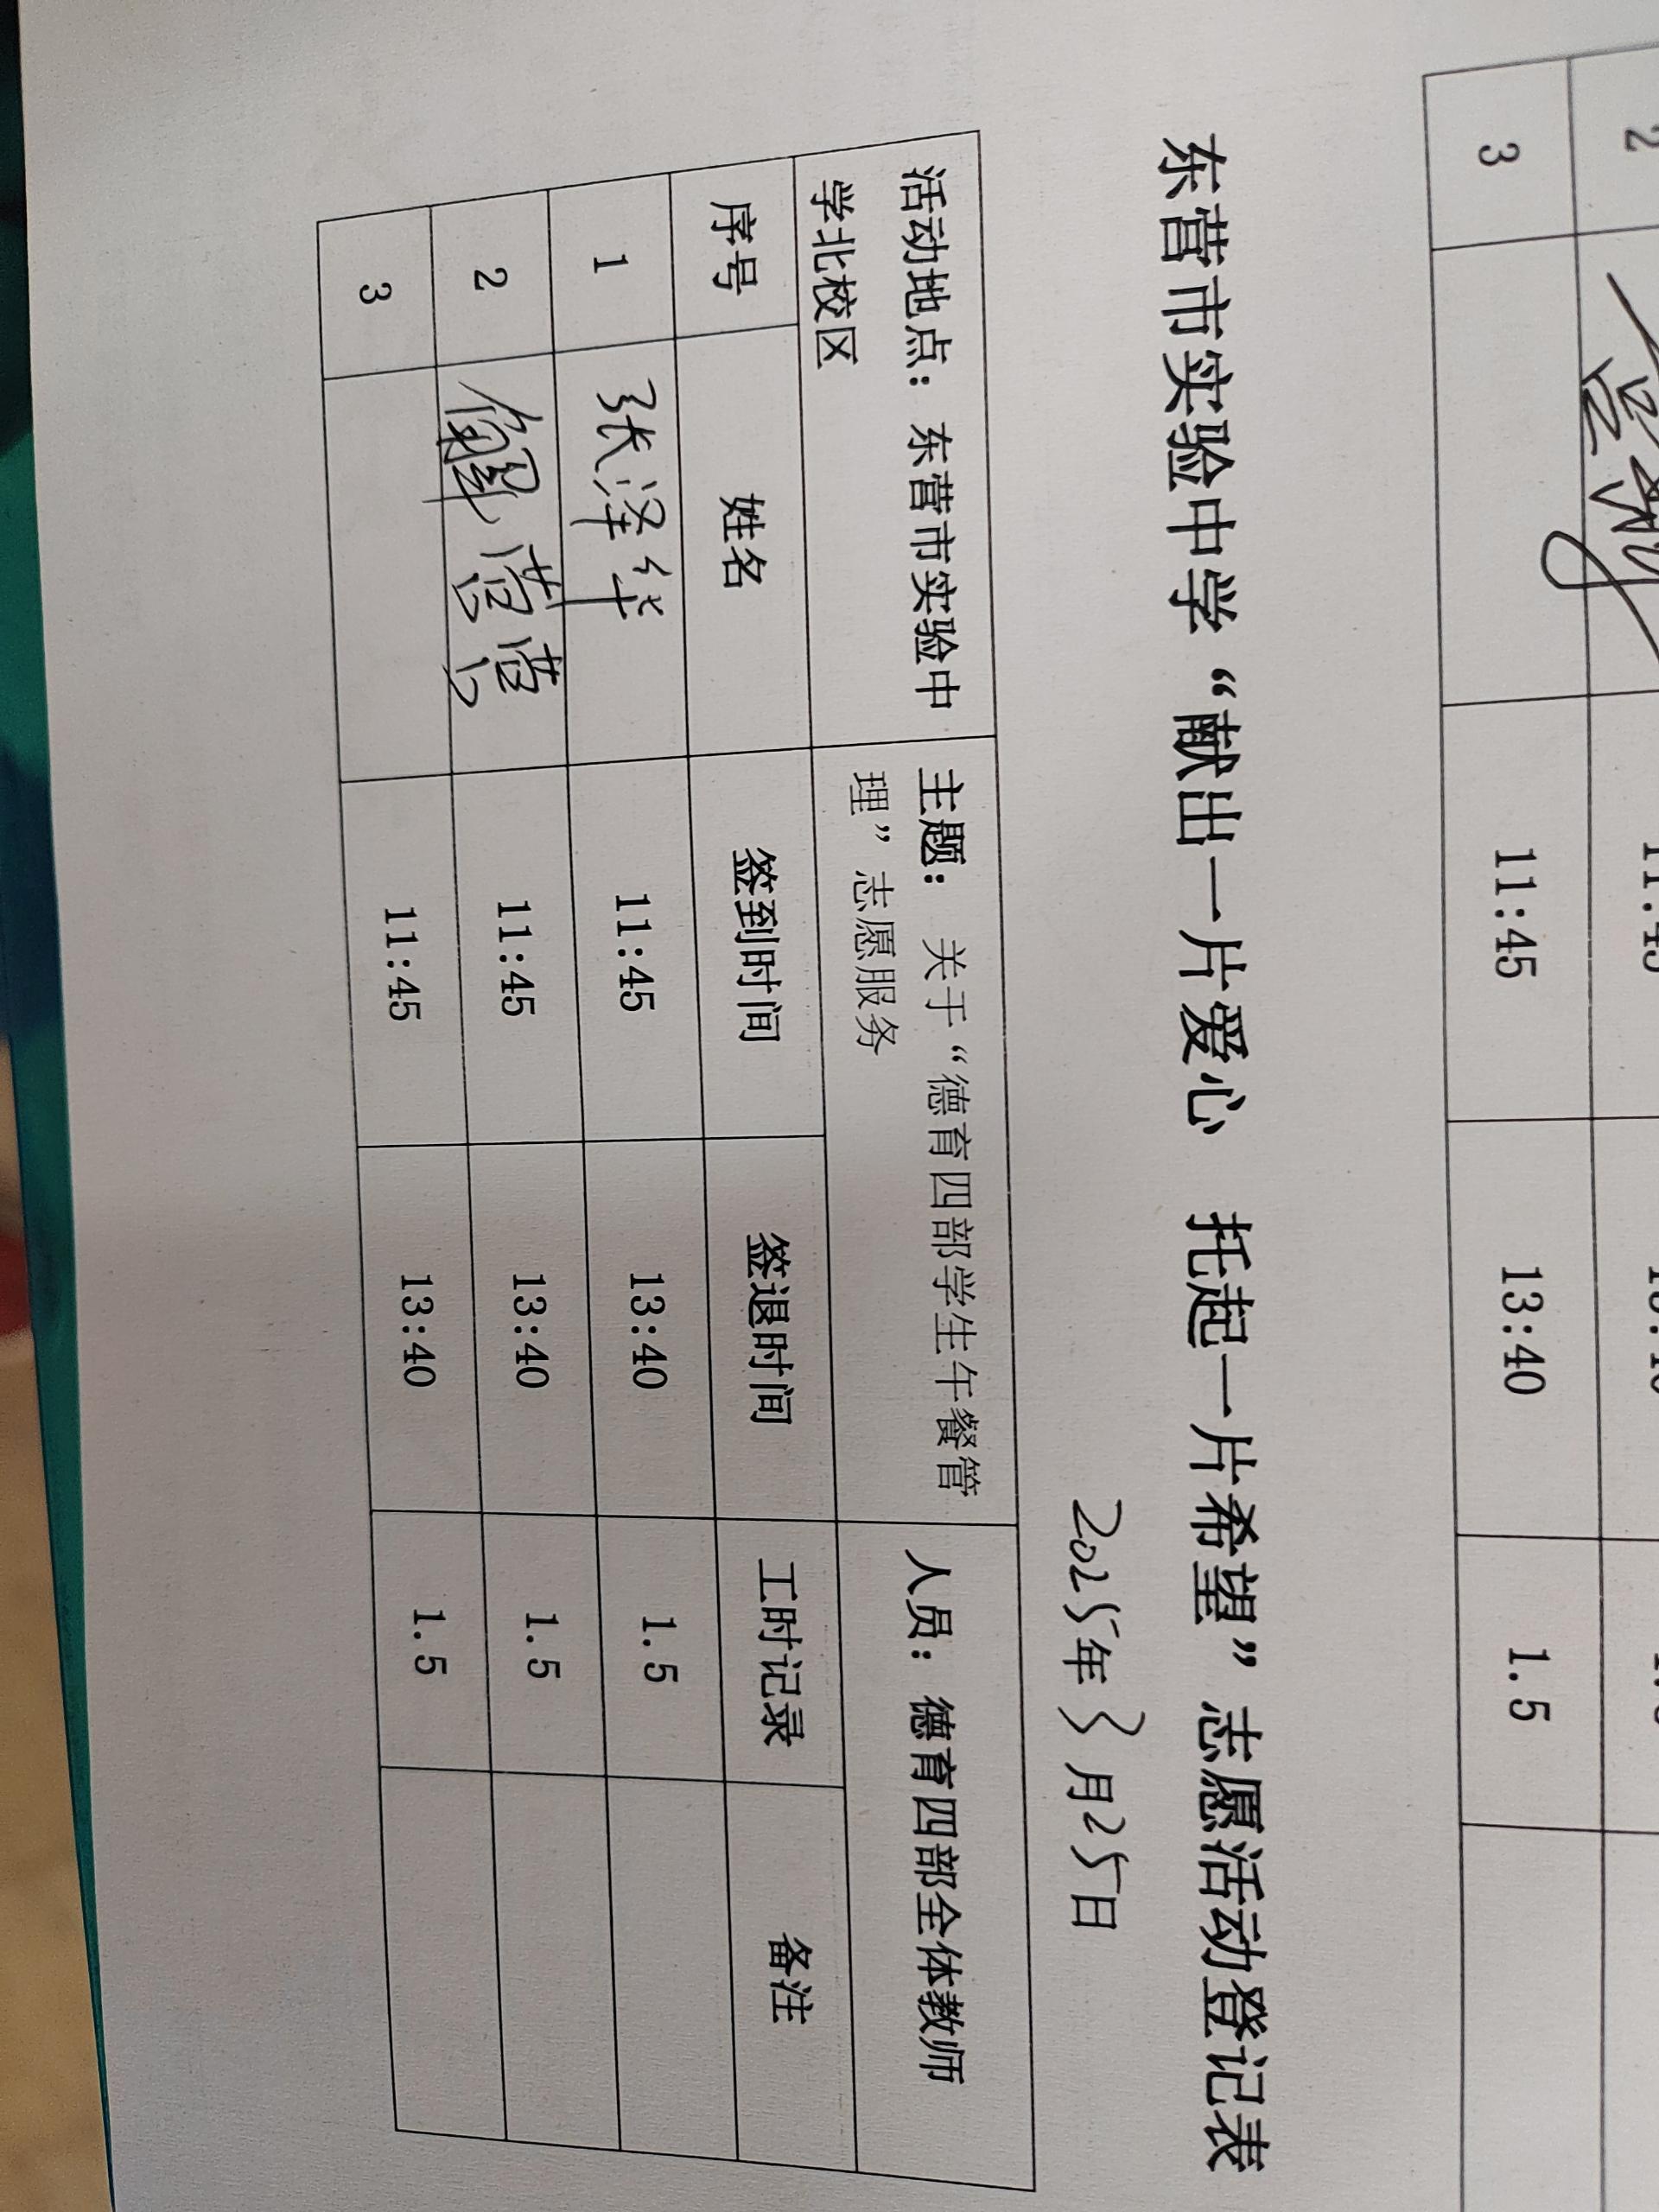 2
11:45
3 11:45 13:40 1.5
东营市实验中学“献出一片爱心 托起一片希望”志愿活动登记表
2025年3月25日
活动地点：东营市实验中学北校区 主题：关于“德育四部学生午餐管理”志愿服务 人员：德育四部全体教师
序号 姓名 签到时间 签退时间 工时记录 备注
1 张泽华 11:45 13:40 1.5
2 11:45 13:40 1.5
3 11:45 13:40 1.5